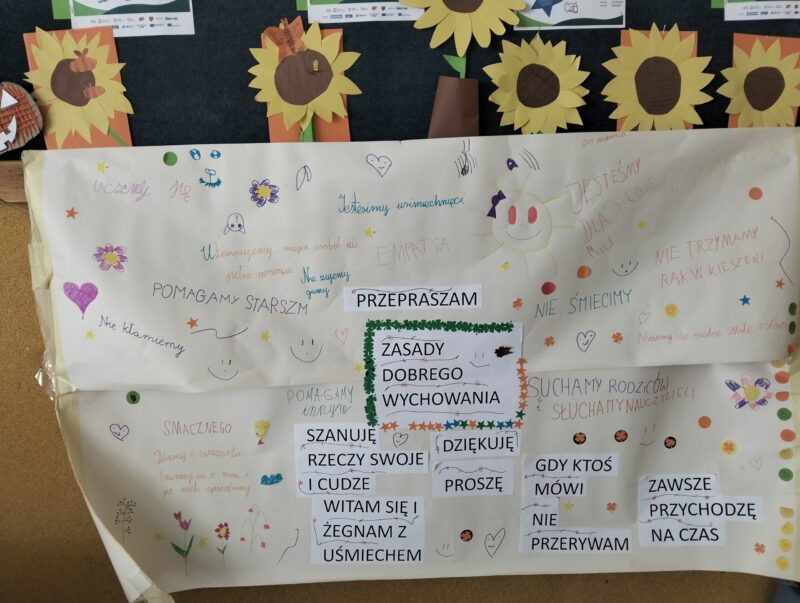 Do widzenia
Uczemy się
Jesteśmy uśmiechnięci
JESTEŚMY
DLA SIEBIE
MILI
EMPATIA
Nie żujemy
gumy
NIE TRZYMAMY
RĄK W KIESZENI
POMAGAMY STARSZM
PRZEPRASZAM
NIE ŚMIECIMY
Nie kłamiemy
Mówimy do siebie miłe słowa
ZASADY
DOBREGO
WYCHOWANIA
POMAGAMY
innym
SUCHAMY RODZICÓW
i SŁUCHAMY NAUCZYCIELI
SMACZNEGO
Dbamy o zwierzęta,
po nich sprzątamy
SZANUJĘ
RZECZY SWOJE
I CUDZE
DZIĘKUJĘ
PROSZĘ
WITAM SIĘ I
ŻEGNAM Z
UŚMIECHEM
GDY KTOŚ
MÓWI
NIE
PRZERYWAM
ZAWSZE
PRZYCHODZĘ
NA CZAS